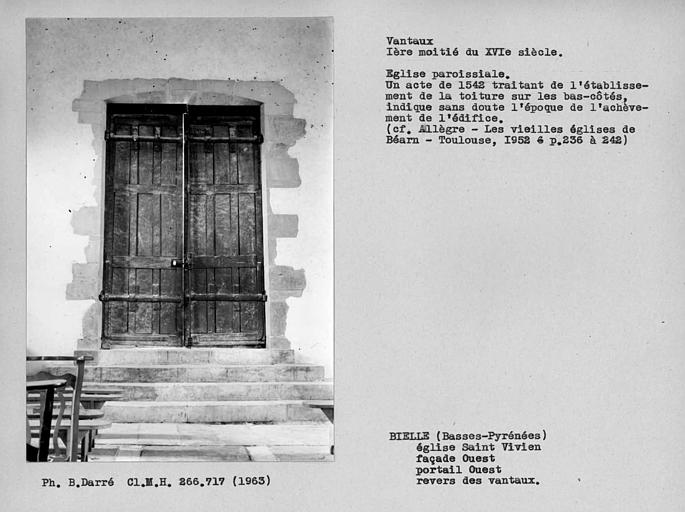 Vantaux
Ière moitié du XVIe siècle.
Eglise paroissiale.
Un acte de 1542 traitant de l'établisse-
ment de la toiture sur les bas-côtés,
indique sans doute l'époque de l'achève-
ment de l'édifice.
(cf. Allègre - Les vieilles églises de
Béarn - Toulouse, I952 p.236 à 242)
BIELLE (Basses-Pyrénées)
église Saint Vivien
façade Ouest
portail Ouest
revers des vantaux.
Ph. B.Darré Cl.M.H. 266.717 (1963)